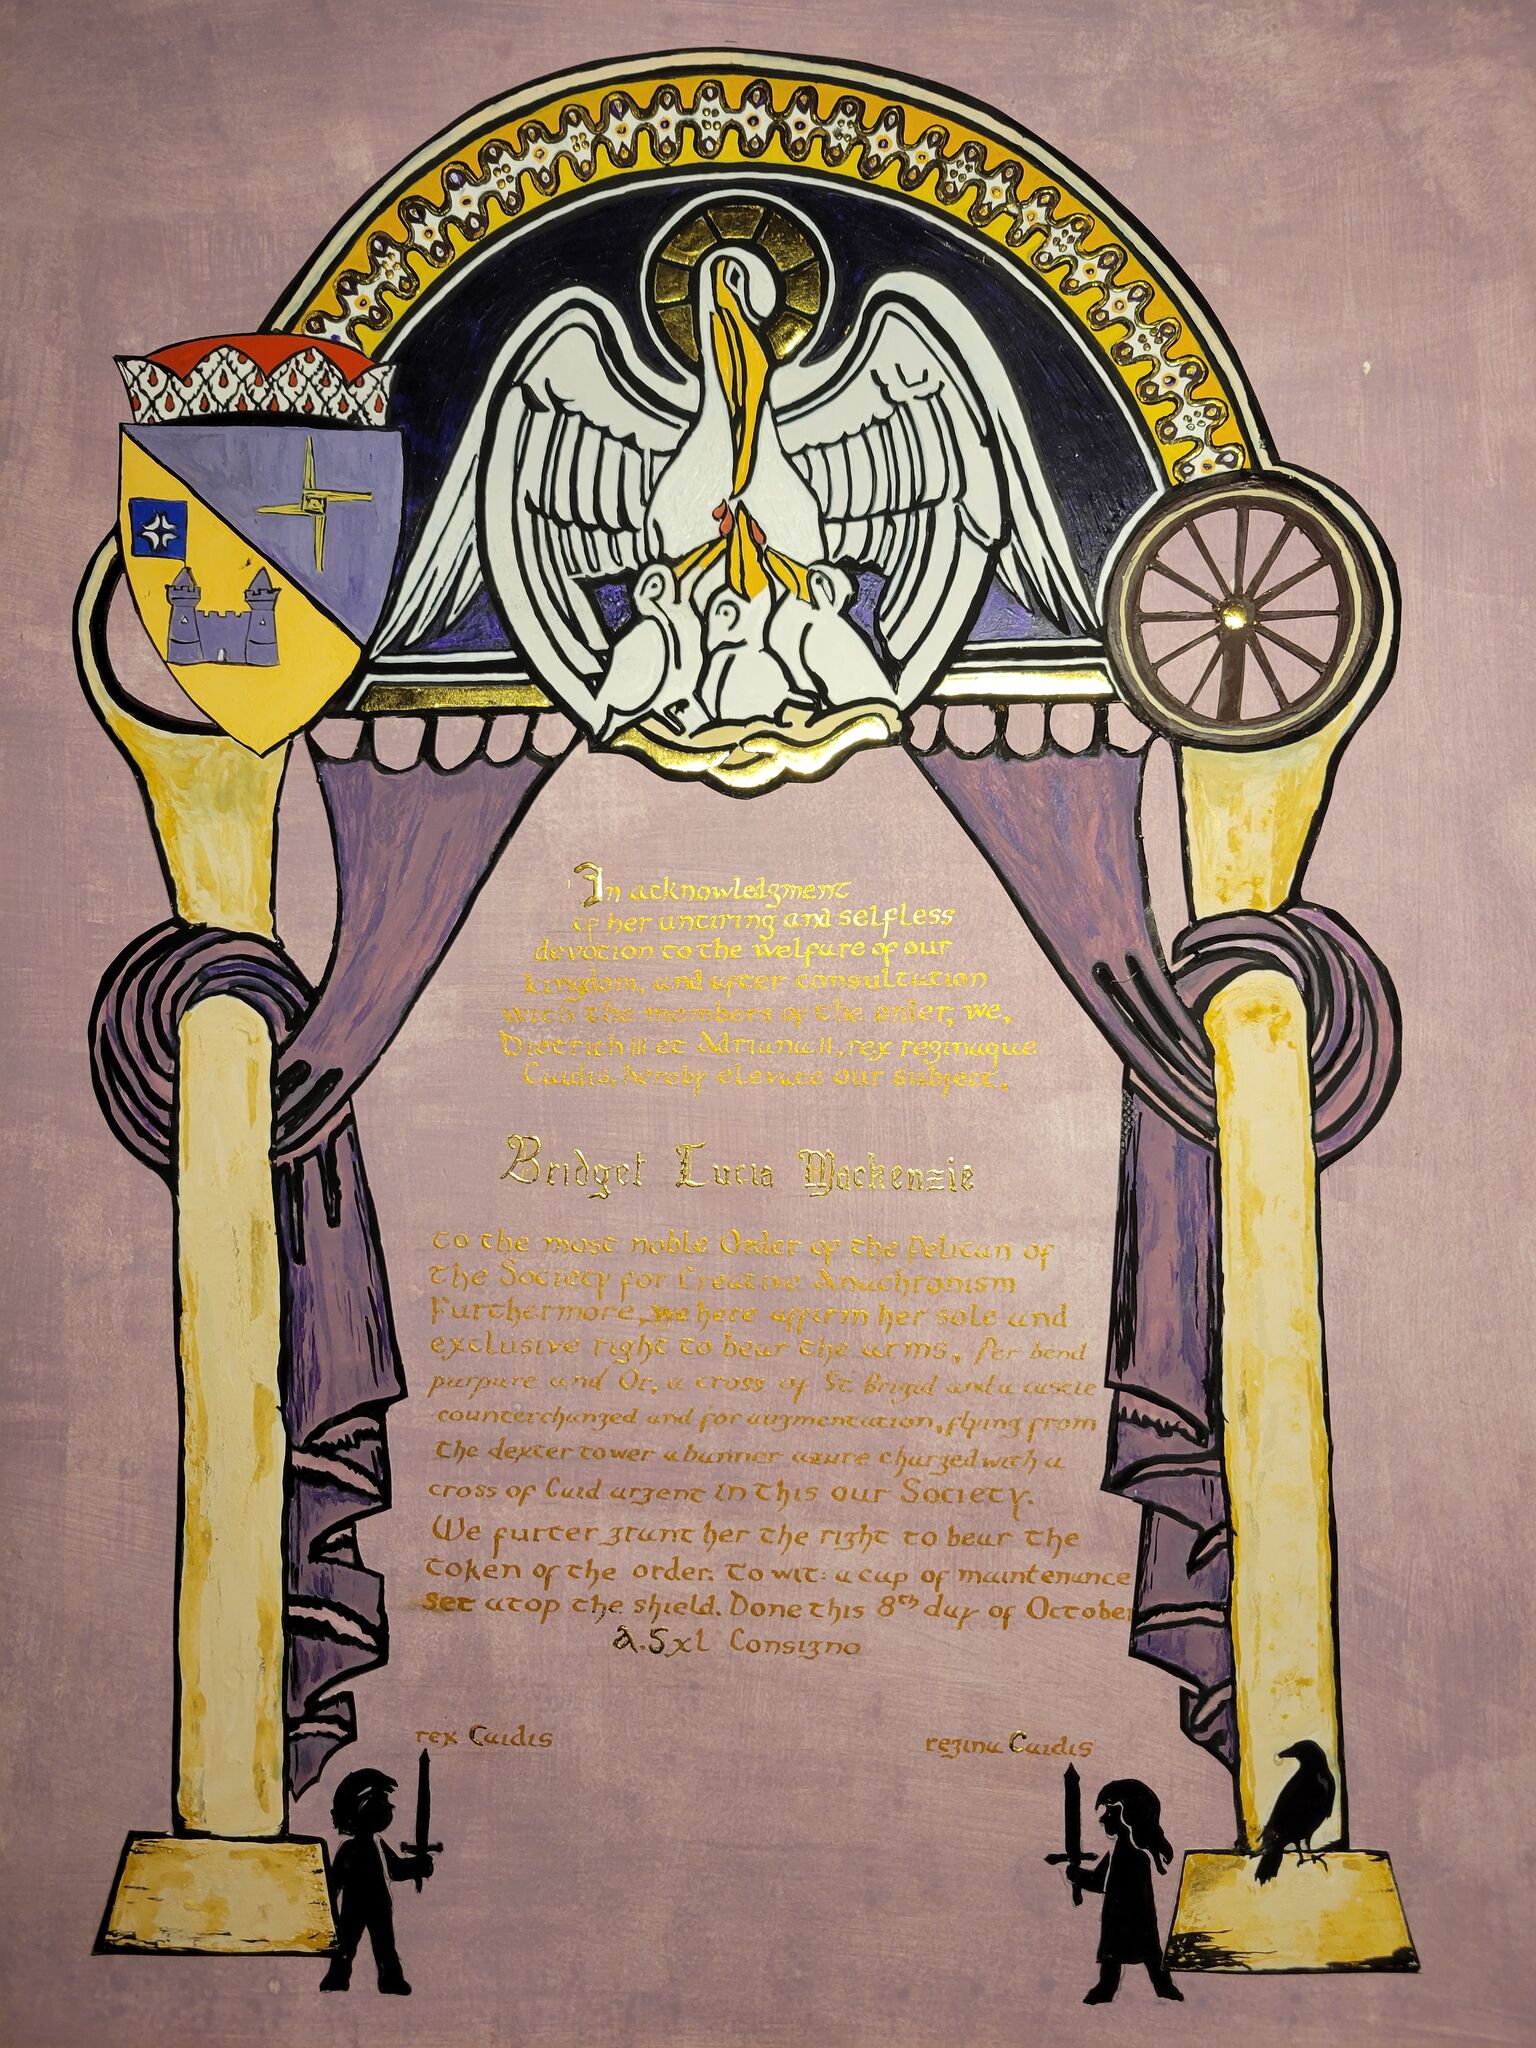 In acknowledgment
of her untiring and selfless
devotion to the welfare of our
kingdom, and after consultation
with the members of the order, we,
Dietrich III et Adriana II, rex reginaque
Caidis, hereby elevate our subject,
Bridget Lucia Mackenzie
to the most noble Order of the Pelican of
the Society for Creative Anachronism
Furthermore, we here affirm her sole and
exclusive right to bear the arms, Per bend
purpure and Or, a cross of St. Brigid and a castle
counterchanged and for augmentation, flying from
the dexter tower a banner azure charged with a
cross of Caid argent in this our Society.
We furter grant her the right to bear the
token of the order: To wit: a cap of maintenance
set atop the shield. Done this 8th day of October
A.S xl Consigno
rex Caidis
regina Caidis